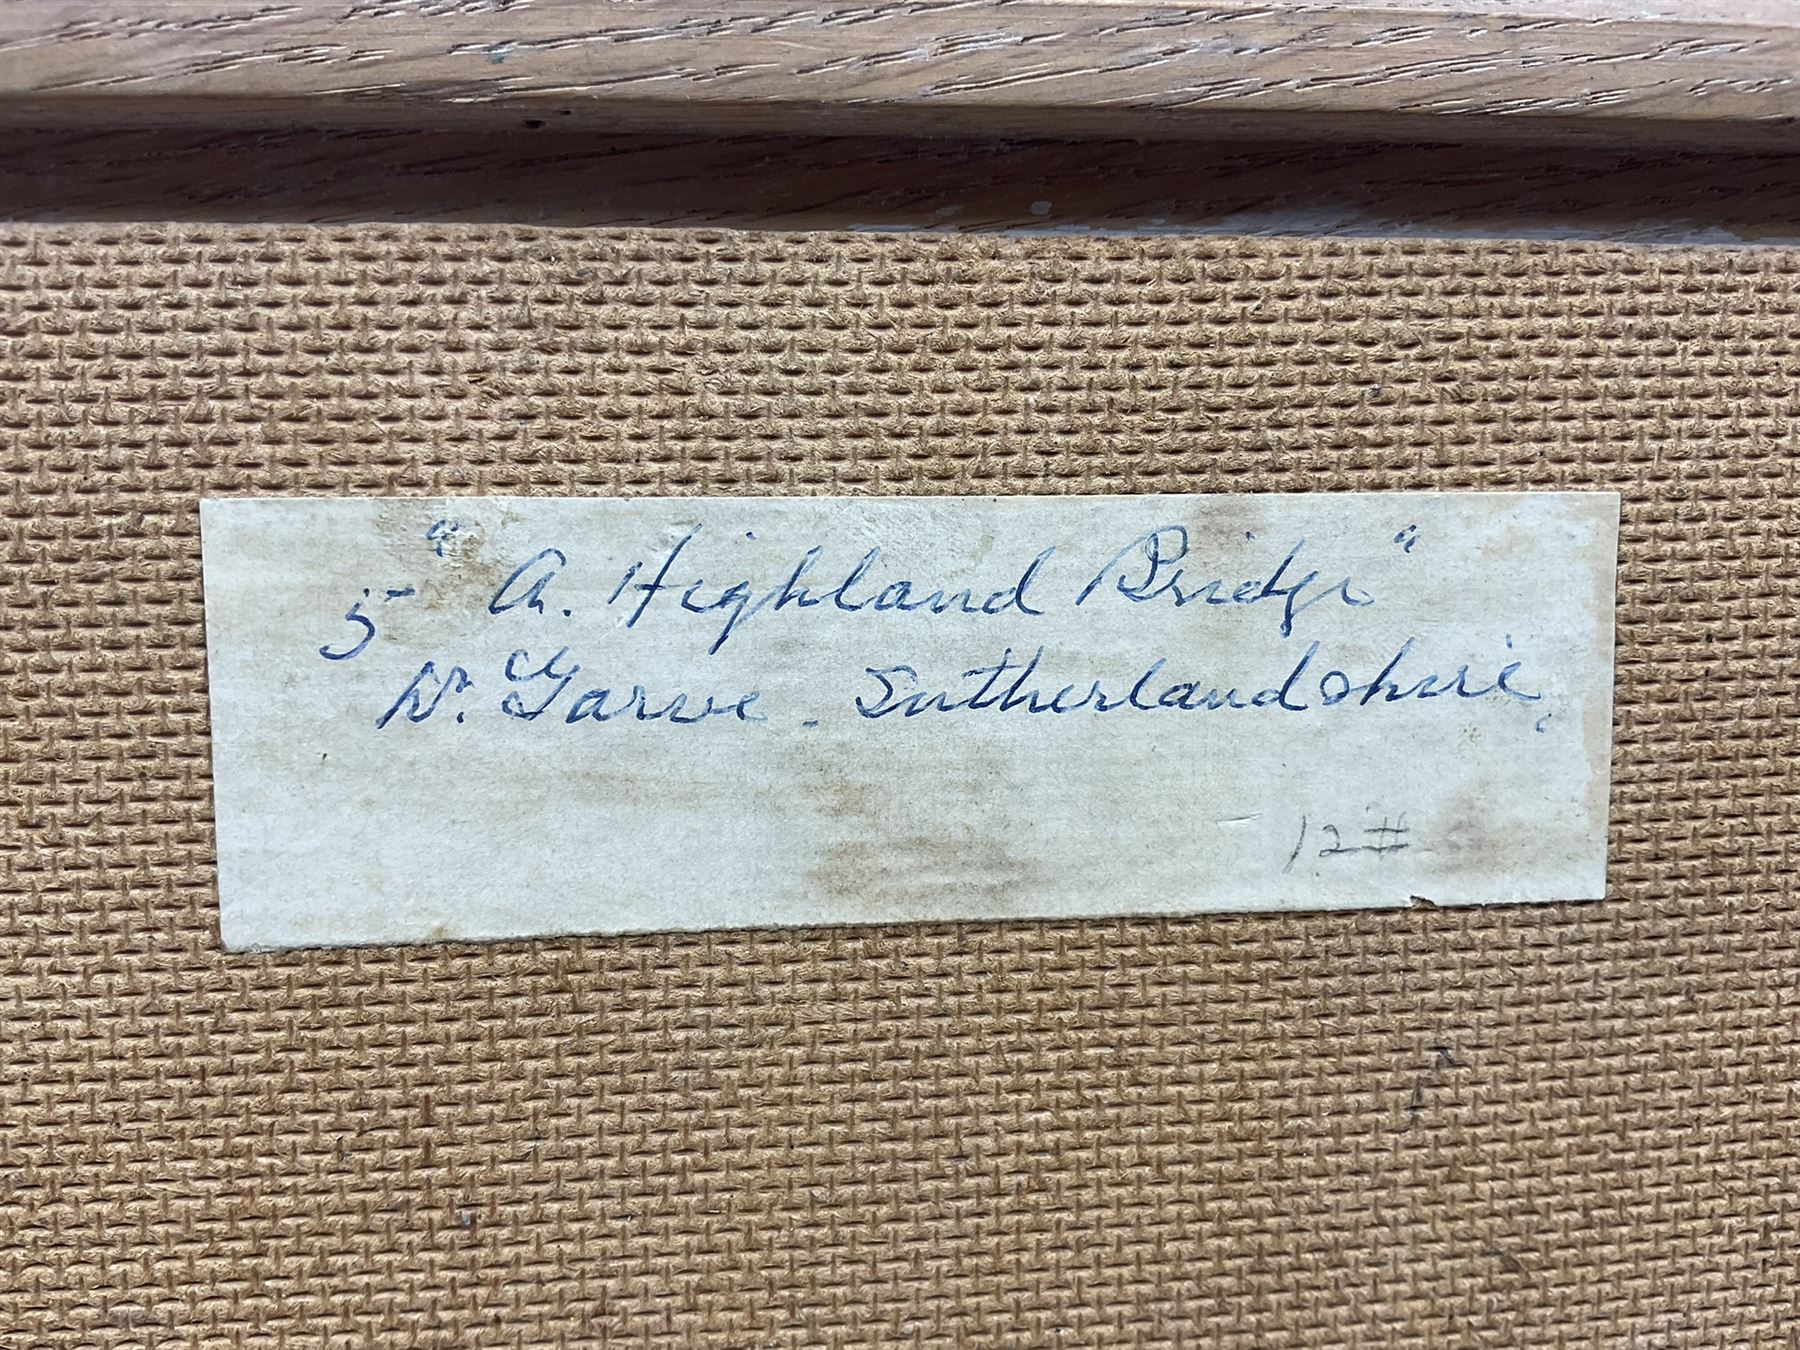 5 "A. Highland Bridge"
Nr. Garve - Sutherlandshire.
12#